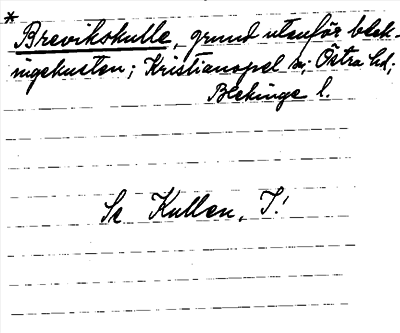 * Brevikskulle, grund utanför blek-
ingekusten; Kristianopel sn; Östra hd;
Blekinge l.
Se Kullen, T!